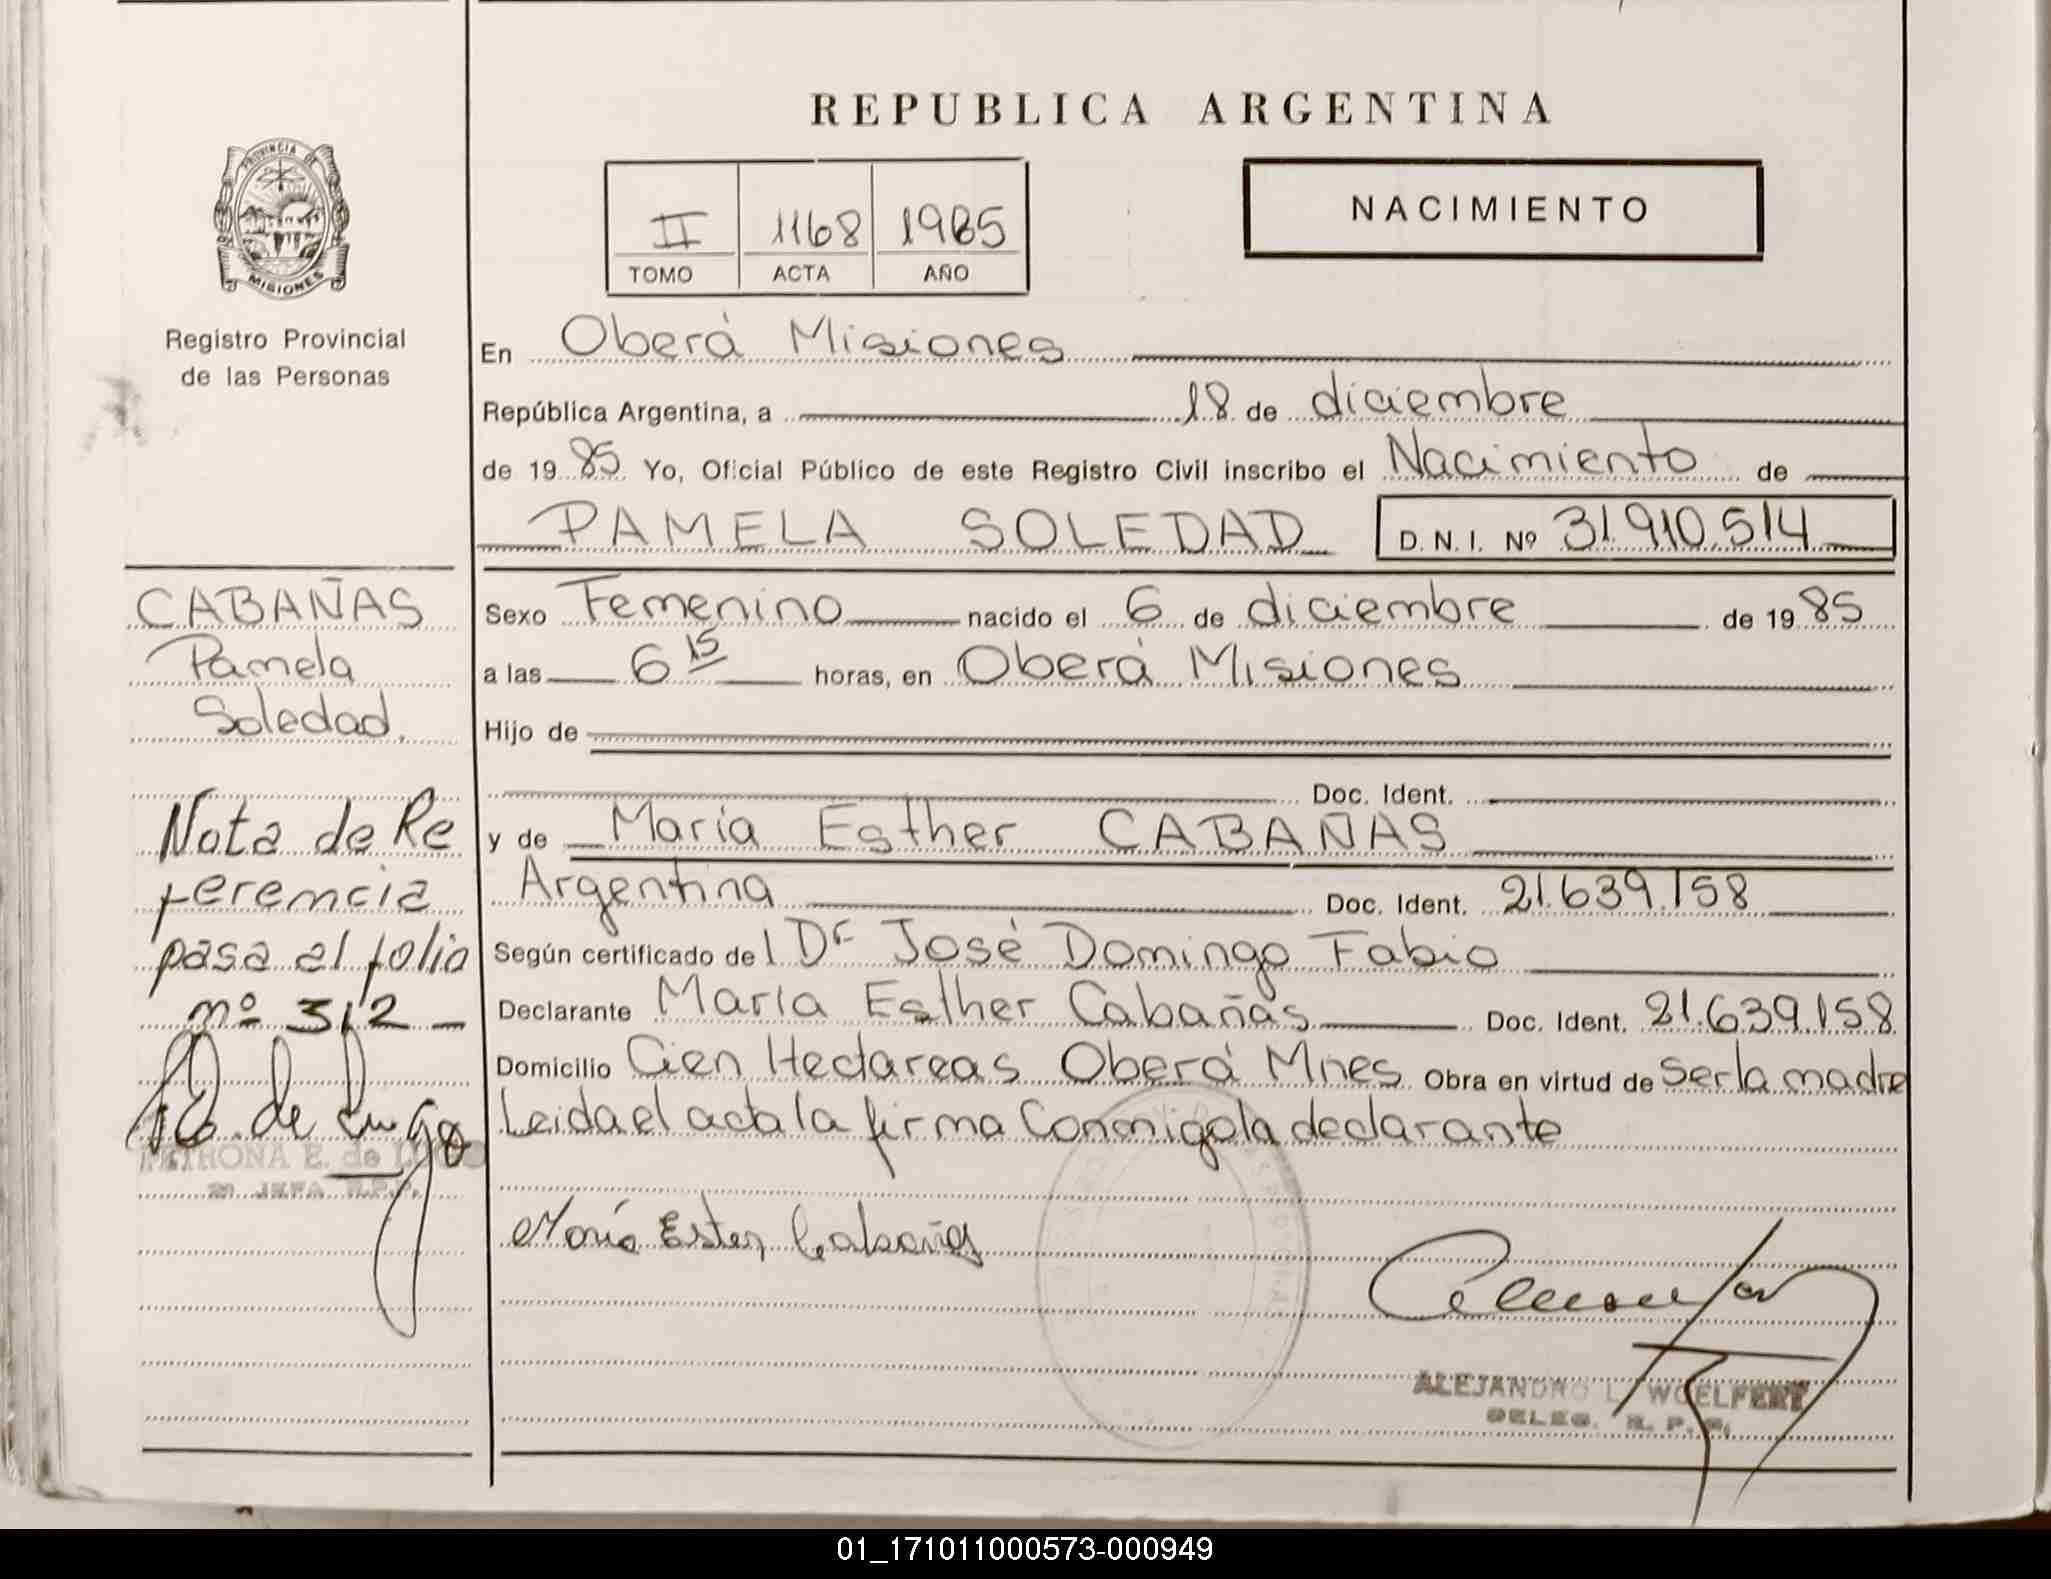 REPUBLICA ARGENTINA
PROVINCIA DE
MISIONES
Registro Provincial
de las Personas
II 1168 1985
TOMO ACTA AÑO
NACIMIENTO
En Oberá Misiones
República Argentina, a 18 de diciembre
de 1985 Yo, Oficial Público de este Registro Civil inscribo el Nacimiento de
PAMELA SOLEDAD D.N.I. Nº 31.910.514
Sexo Femenino nacido el 6 de diciembre de 1985
a las 6 15 horas, en Oberá Misiones
Hijo de
Doc. Ident.
y de María Esther CABAÑAS
Argentina Doc. Ident. 21.639.158
Según certificado del Dr José Domingo Fabio
Declarante María Esther Cabañas Doc. Ident. 21.639.158
Domicilio Cien Hectareas Oberá Mnes Obra en virtud de Ser la madre
Leida el acta la firma Conmigo la declarante
María Ester Cabañas
ALEJANDRO L. WOELFERT
DELEG. R. P. P.
CABAÑAS
Pamela
Soledad.
Nota de Re
ferencia
pasa al folio
nº 312 -
P. E. de Lugo
PETRONA E. de LUGO
JEFA R.P.P.
01_171011000573-000949